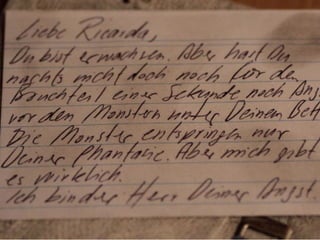 Liebe Ricarda,
Du bist erwachsen. Aber hast Du
nachts nicht doch noch für den
Bruchteil einer Sekunde noch Angst
vor den Monstern unter Deinem Bett
Die Monster entspringen nur
Deiner Phantasie. Aber mich gibt
es wirklich.
Ich bin der Herr Deiner Angst.